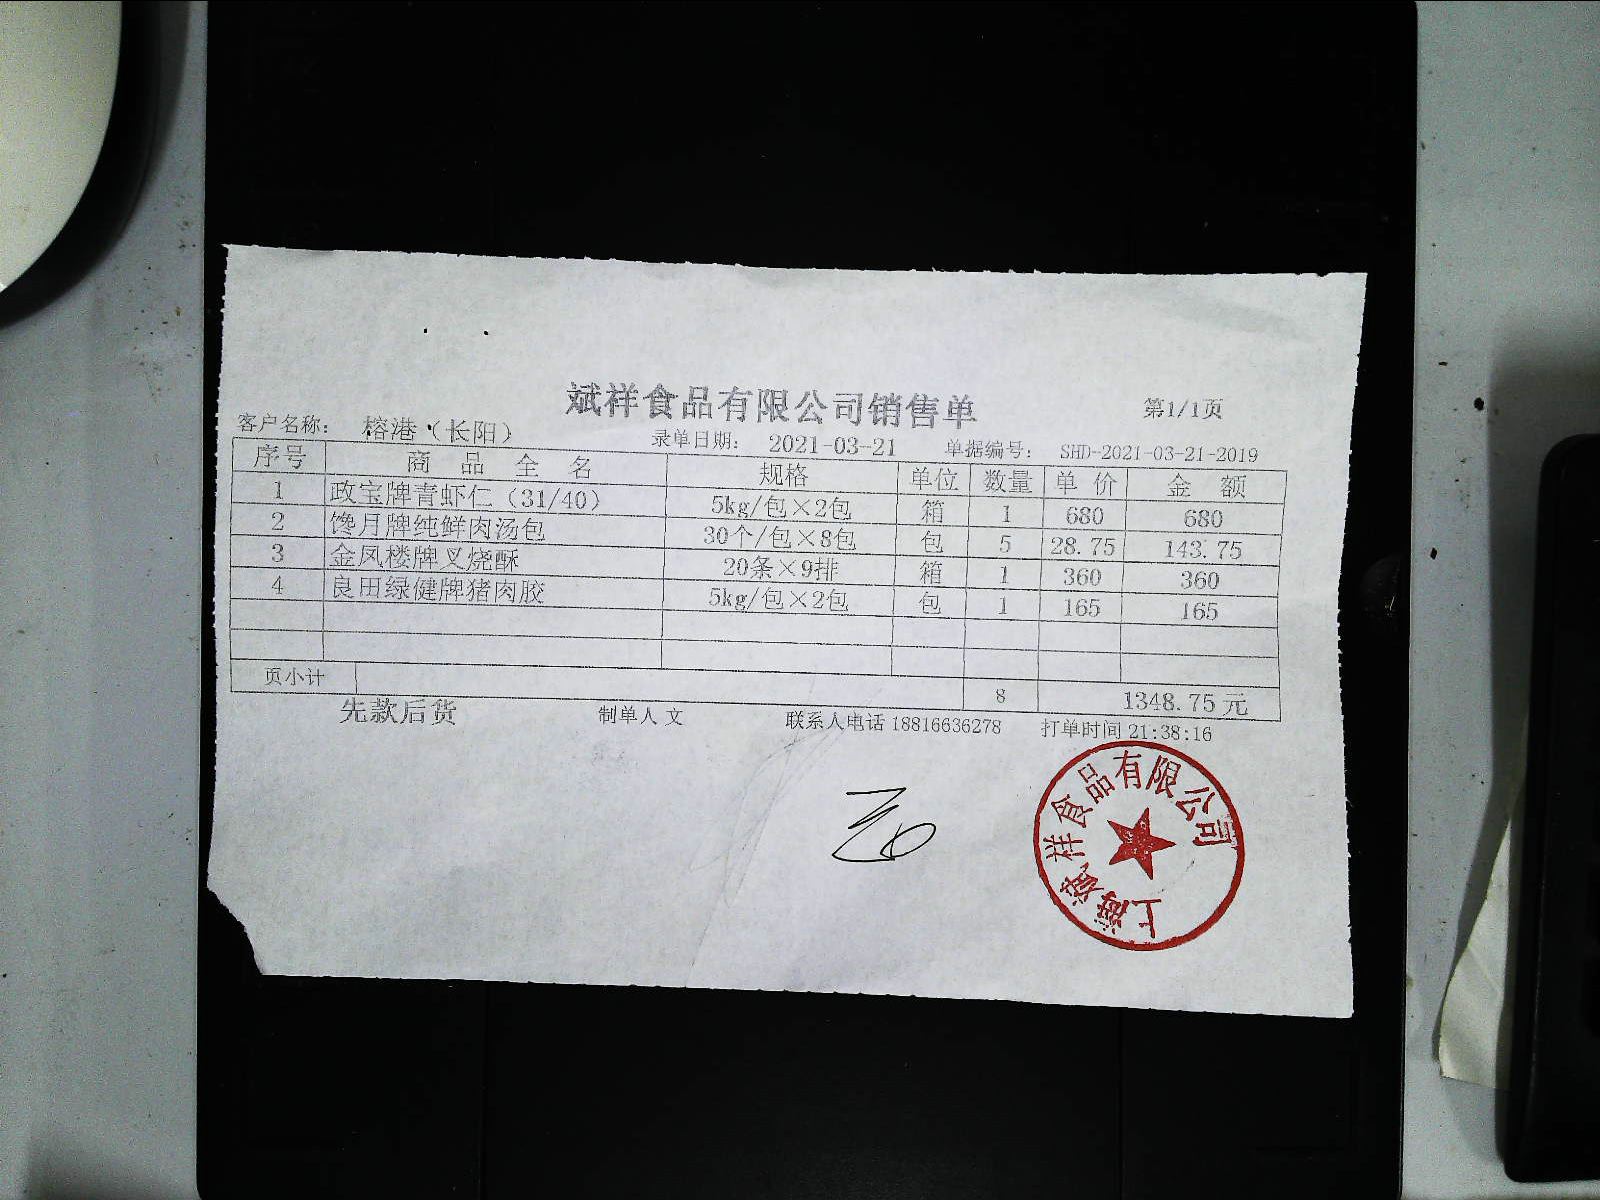 斌祥食品有限公司销售单
第1/1页
客户名称： 榕港（长阳） 录单日期： 2021-03-21 单据编号： SHD-2021-03-21-2019
序号 商品全名 规格 单位 数量 单价 金额
1 政宝牌青虾仁（31/40） 5kg/包×2包 箱 1 680 680
2 馋月牌纯鲜肉汤包 30个/包×8包 包 5 28.75 143.75
3 金凤楼牌叉烧酥 20条×9排 箱 1 360 360
4 良田绿健牌猪肉胶 5kg/包×2包 包 1 165 165
页小计 8 1348.75元
先款后货 制单人 文 联系人电话 18816636278 打单时间 21:38:16
上海斌祥食品有限公司